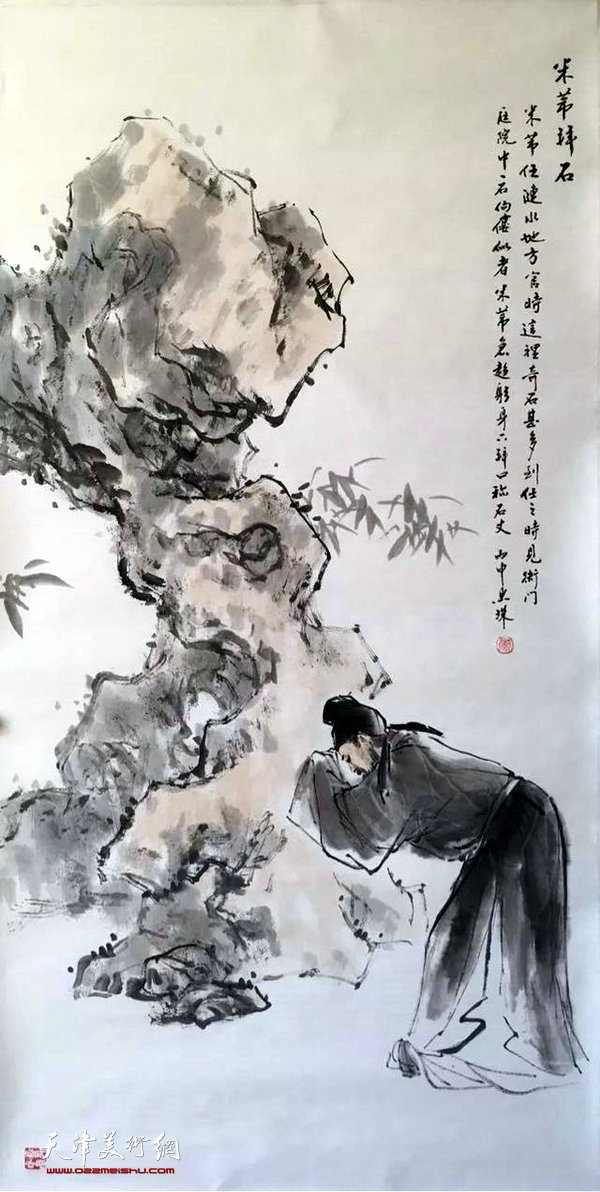 米芾拜石
米芾任涟水地方官時這裡奇石甚多到任之時見衙门
庭院中一石佝偻似者米芾急趋躬身下拜口称石丈 丙申惠珠
天津美術網
www.022meishu.com